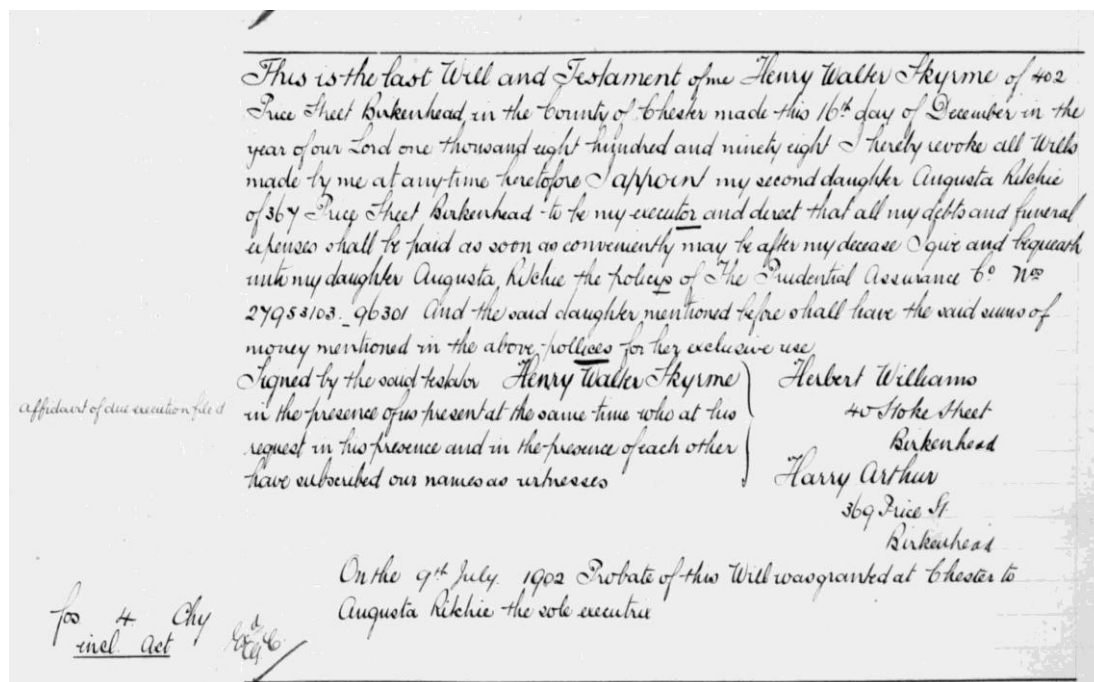 This is the last Will and Testament of me Henry Walter Skyrme of 402
Price Street Birkenhead in the County of Chester made this 16th day of December in the
year of our Lord one thousand eight hundred and ninety eight I hereby revoke all Wills
made by me at any time heretofore I appoint my second daughter Augusta Ritchie
of 367 Price Street Birkenhead to be my executor and direct that all my debts and funeral
expenses shall be paid as soon as conveniently may be after my decease I give and bequeath
unto my daughter Augusta Ritchie the policys of The Prudential Assurance Co. Nos
27953103_96301 And the said daughter mentioned before shall have the said sums of
money mentioned in the above pollices for her exclusive use
Signed by the said testator Henry Walter Skyrme
in the presence of us present at the same time who at his
request in his presence and in the presence of each other
have subscribed our names as witnesses
Herbert Williams
40 Stoke Street
Birkenhead
Harry Arthur
369 Price St.
Birkenhead
affidavit of due execution filed
On the 9th July. 1902 Probate of this Will was granted at Chester to
Augusta Ritchie the sole executrix
fos 4. Chy
incl. Act